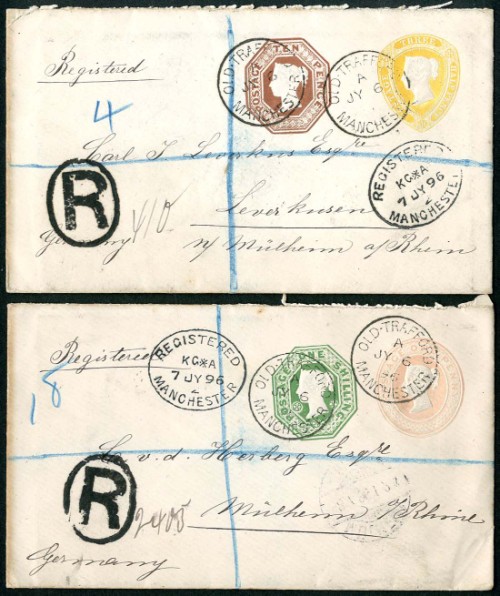 Registered
OLD-TRAFFORD
JY 6
MANCHESTER
POSTAGE TEN PENCE
OLD-TRAFFORD
A
JY 6
MANCHESTER
THREE
4
Carl F Leverkus Esqre
REGISTERED
KG*A
7 JY 96
2
MANCHESTER
R
410
Leverkusen
Germany
n/ Mülheim a/Rhein
Registered
REGISTERED
KG*A
7 JY 96
2
MANCHESTER
OLD-TRAFFORD
A
6
MANCHESTER
POSTAGE ONE SHILLING
OLD-TRAFFORD
A
JY 6
96
MANCHESTER
18
v. d. Herberg Esqre
R
2405
Mülheim a/Rhine
Germany